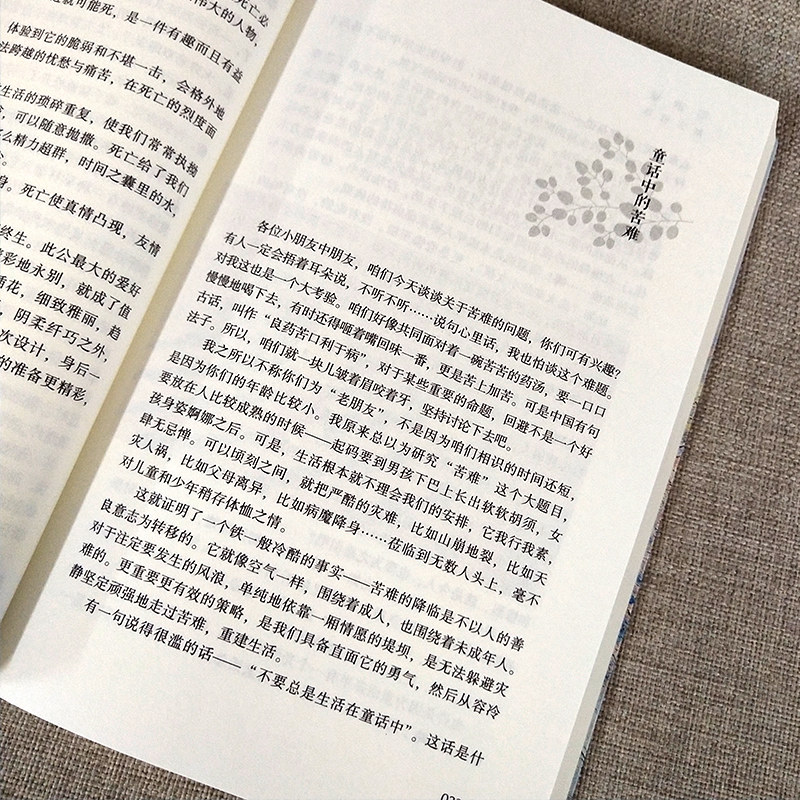 死亡必
伟大的人物，
就可能死，是一件有趣而且有益
体验到它的脆弱和不堪一击，会格外地
法跨越的忧愁与痛苦，在死亡的烈度面
生活的琐碎重复，使我们常常执拗
，可以随意抛撒。死亡给了我们
么精力超群，时间之囊里的水，
身。死亡使真情凸现，友情
终生。此公最大的爱好
彩地永别，就成了值
插花，细致雅丽，趋
，阴柔纤巧之外，
次设计，身后一
的准备更精彩，
童话中的苦难
各位小朋友中朋友，咱们今天谈谈关于苦难的问题，你们可有兴趣？
有人一定会捂着耳朵说，不听不听……说句心里话，我也怕谈这个难题。
对我这也是一个大考验。咱们好像共同面对着一碗苦苦的药汤，要一口口
慢慢地喝下去，有时还得咂着嘴回味一番，更是苦上加苦。可是中国有句
古话，叫作“良药苦口利于病”，对于某些重要的命题，回避不是一个好
法子。所以，咱们就一块儿皱着眉咬着牙，坚持讨论下去吧。
我之所以不称你们为“老朋友”，不是因为咱们相识的时间还短，
是因为你们的年龄比较小。我原来总以为研究“苦难”这个大题目，
要放在人比较成熟的时候——起码要到男孩下巴上长出软软胡须，女
孩身姿婀娜之后。可是，生活根本就不理会我们的安排，它我行我素，
肆无忌惮。可以顷刻之间，就把严酷的灾难，比如山崩地裂，比如天
灾人祸，比如父母离异，比如病魔降身……莅临到无数人头上，毫不
对儿童和少年稍存体恤之情。
这就证明了一个铁一般冷酷的事实——苦难的降临是不以人的善
良意志为转移的。它就像空气一样，围绕着成人，也围绕着未成年人。
对于注定要发生的风浪，单纯地依靠一厢情愿的堤坝，是无法躲避灾
难的。更重要更有效的策略，是我们具备直面它的勇气，然后从容冷
静坚定顽强地走过苦难，重建生活。
有一句说得很滥的话——“不要总是生活在童话中”。这话是什